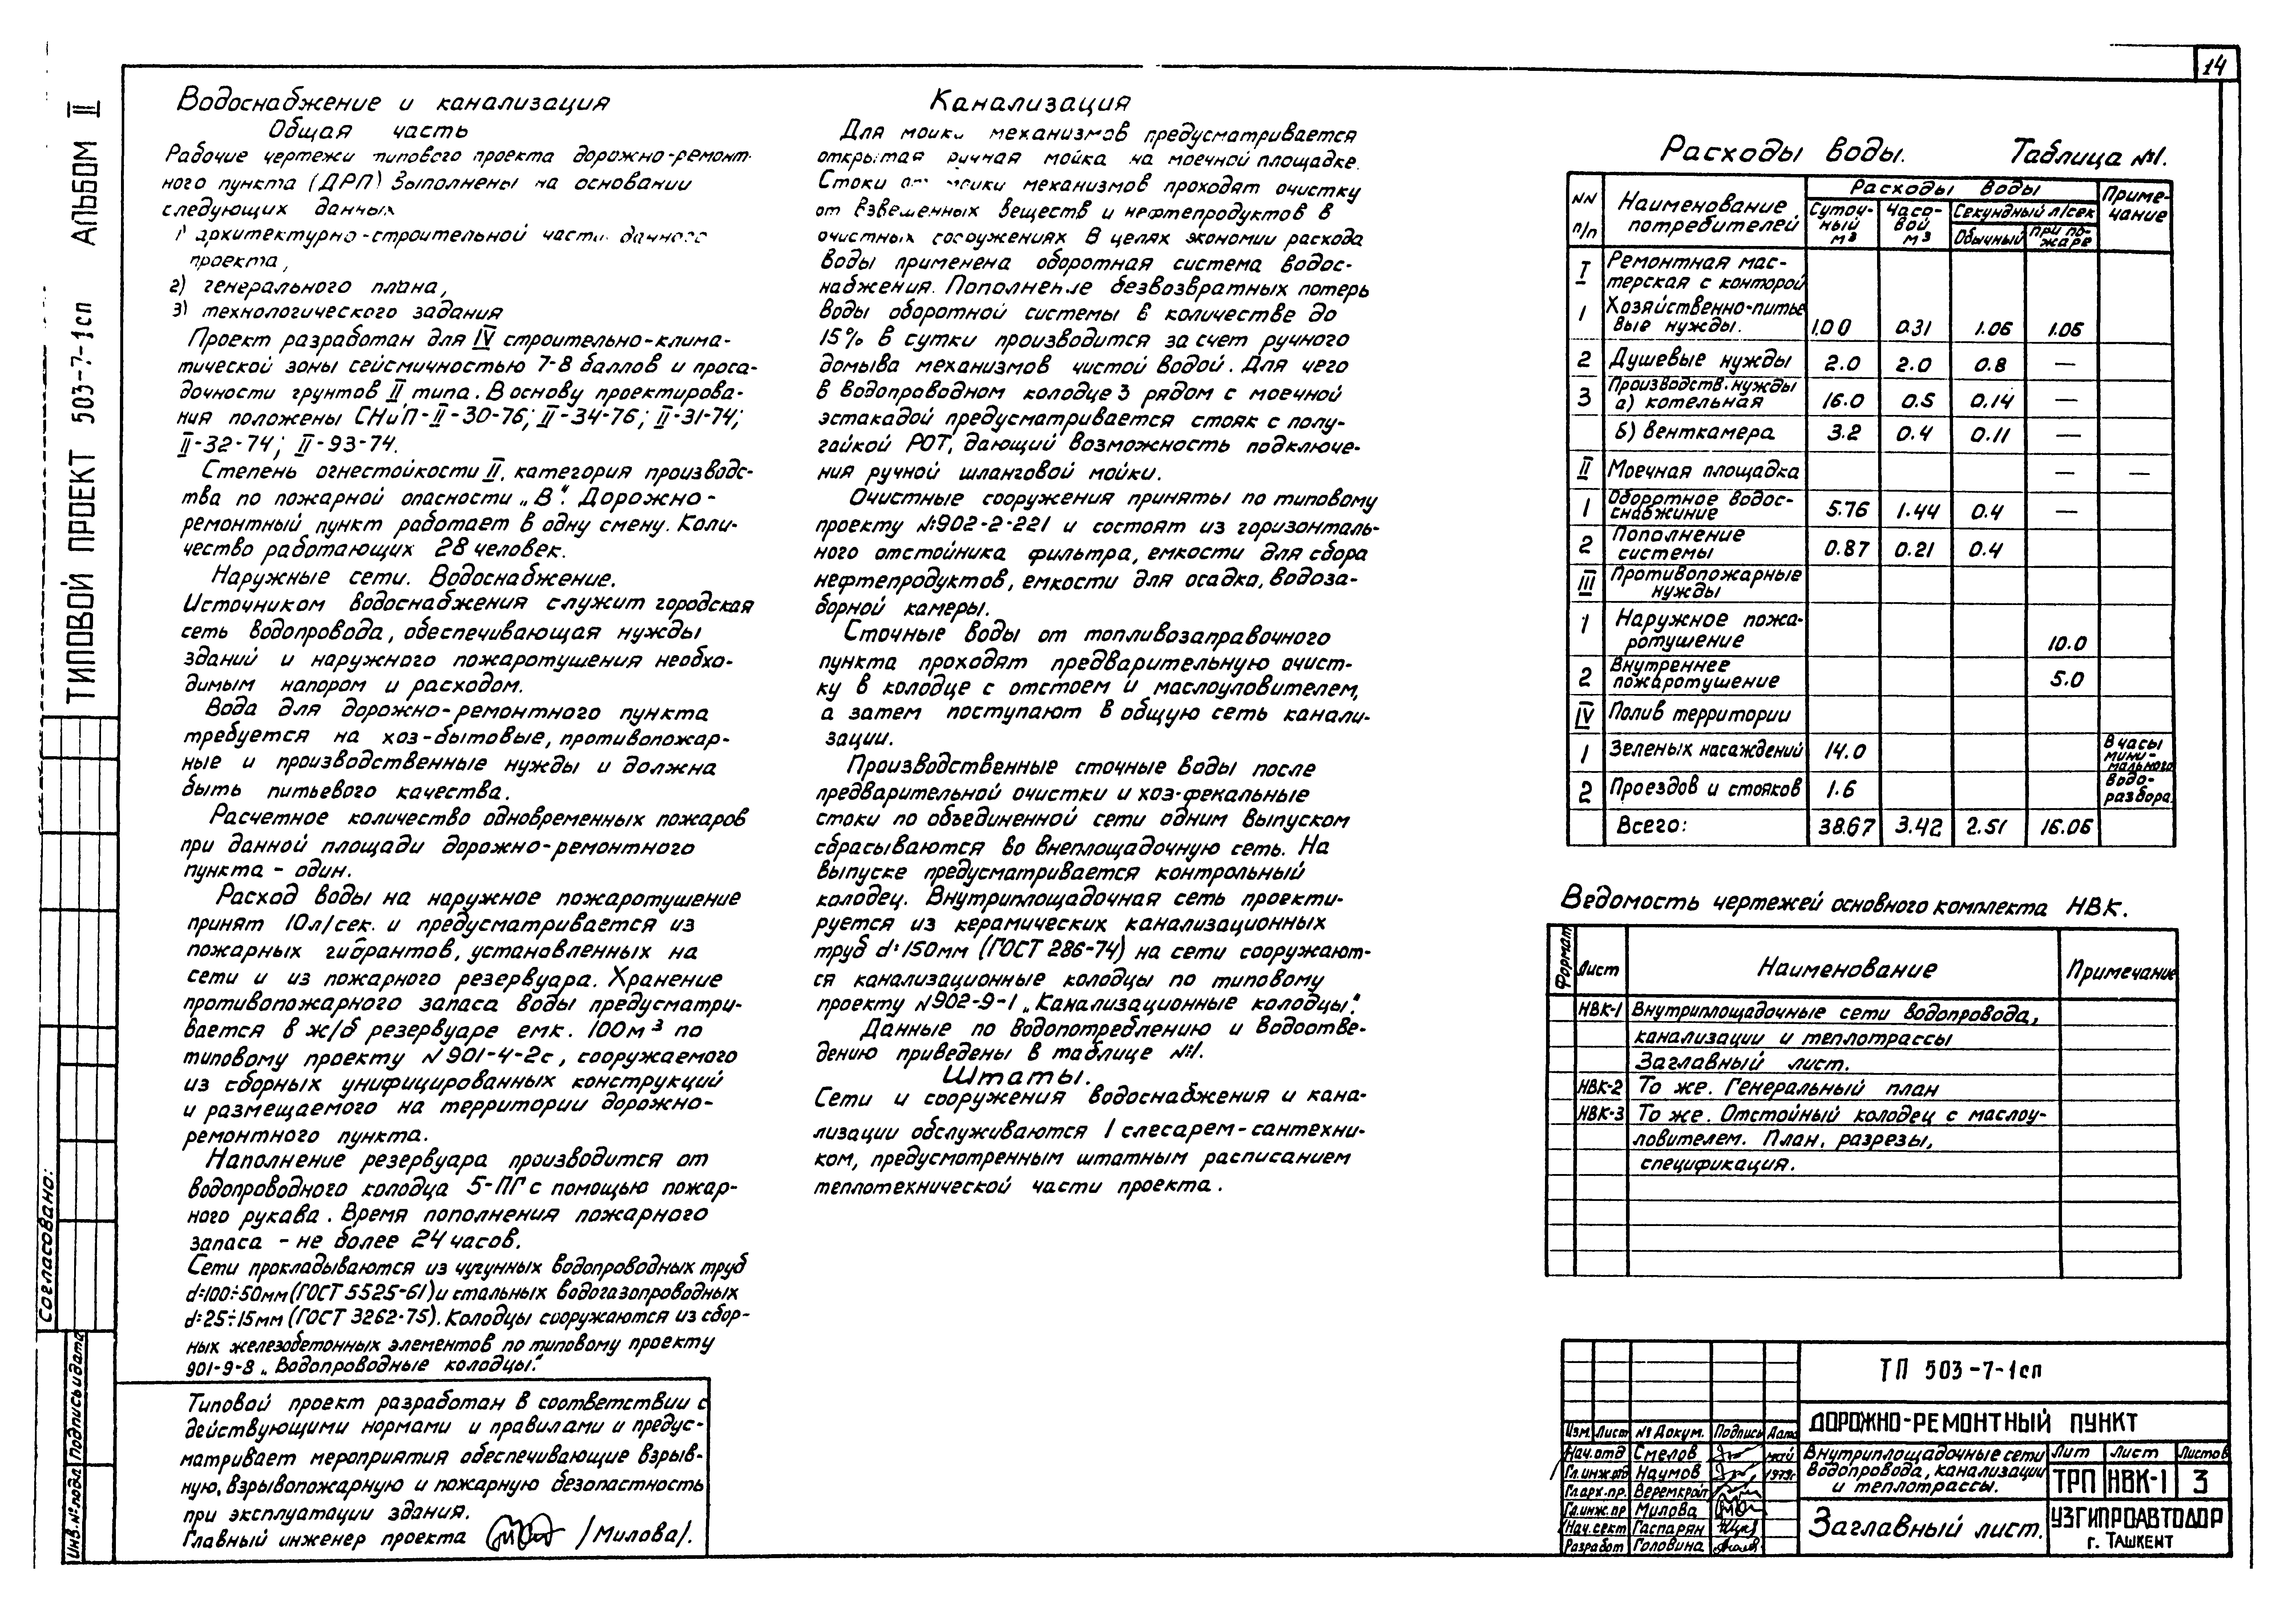 14
ТИПОВОЙ ПРОЕКТ 503-7-1сп АЛЬБОМ II
Согласовано:
Инв.№ подл. Подпись и дата
Водоснабжение и канализация
Общая часть
Рабочие чертежи типового проекта дорожно-ремонт-
ного пункта (ДРП) выполнены на основании
следующих данных
1) архитектурно-строительной части данного
проекта,
2) генерального плана,
3) технологического задания
Проект разработан для IV строительно-клима-
тической зоны сейсмичностью 7-8 баллов и проса-
дочности грунтов II типа. В основу проектирова-
ния положены СНиП-II-30-76; II-34-76; II-31-74;
II-32-74; II-93-74.
Степень огнестойкости II, категория производс-
тва по пожарной опасности „В". Дорожно-
ремонтный пункт работает в одну смену. Коли-
чество работающих 28 человек.
Наружные сети. Водоснабжение.
Источником водоснабжения служит городская
сеть водопровода, обеспечивающая нужды
зданий и наружного пожаротушения необхо-
димым напором и расходом.
Вода для дорожно-ремонтного пункта
требуется на хоз-бытовые, противопожар-
ные и производственные нужды и должна
быть питьевого качества.
Расчетное количество одновременных пожаров
при данной площади дорожно-ремонтного
пункта - один.
Расход воды на наружное пожаротушение
принят 10л/сек. и предусматривается из
пожарных гидрантов, установленных на
сети и из пожарного резервуара. Хранение
противопожарного запаса воды предусматри-
вается в ж/б резервуаре емк. 100м³ по
типовому проекту №901-4-2с, сооружаемого
из сборных унифицированных конструкций
и размещаемого на территории дорожно-
ремонтного пункта.
Наполнение резервуара производится от
водопроводного колодца 5-ПГ с помощью пожар-
ного рукава. Время пополнения пожарного
запаса - не более 24 часов.
Сети прокладываются из чугунных водопроводных труб
d=100÷50мм (ГОСТ 5525-61) и стальных водогазопроводных
d=25÷15мм (ГОСТ 3262-75). Колодцы сооружаются из сбор-
ных железобетонных элементов по типовому проекту
901-9-8 „Водопроводные колодцы."
Типовой проект разработан в соответствии с
действующими нормами и правилами и предус-
матривает мероприятия обеспечивающие взрыв-
ную, взрывопожарную и пожарную безопастность
при эксплуатации здания.
Главный инженер проекта /Милова/.
Канализация
Для мойки механизмов предусматривается
открытая ручная мойка на моечной площадке.
Стоки от мойки механизмов проходят очистку
от взвешенных веществ и нефтепродуктов в
очистных сооружениях В целях экономии расхода
воды применена оборотная система водос-
набжения. Пополнение безвозвратных потерь
воды оборотной системы в количестве до
15% в сутки производится за счет ручного
домыва механизмов чистой водой. Для чего
в водопроводном колодце 3 рядом с моечной
эстакадой предусматривается стояк с полу-
гайкой РОТ, дающий возможность подключе-
ния ручной шланговой мойки.
Очистные сооружения приняты по типовому
проекту №902-2-221 и состоят из горизонталь-
ного отстойника фильтра, емкости для сбора
нефтепродуктов, емкости для осадка, водоза-
борной камеры.
Сточные воды от топливозаправочного
пункта проходят предварительную очист-
ку в колодце с отстоем и маслоуловителем,
а затем поступают в общую сеть канали-
зации.
Производственные сточные воды после
предварительной очистки и хоз-фекальные
стоки по объединенной сети одним выпуском
сбрасываются во внеплощадочную сеть. На
выпуске предусматривается контрольный
колодец. Внутриплощадочная сеть проекти-
руется из керамических канализационных
труб d=150мм (ГОСТ 286-74) на сети сооружают-
ся канализационные колодцы по типовому
проекту №902-9-1 „Канализационные колодцы".
Данные по водопотреблению и водоотве-
дению приведены в таблице №1.
Штаты.
Сети и сооружения водоснабжения и кана-
лизации обслуживаются 1 слесарем-сантехни-
ком, предусмотренным штатным расписанием
теплотехнической части проекта.
Расходы воды. Таблица №1.
NN п/п Наименование потребителей Расходы воды Примечание
Суточный м3 Часовой м3 Секундный л/сек
Обычный При пожаре
I Ремонтная мас-
терская с конторой
1 Хозяйственно-питье
вые нужды. 1.00 0.31 1.06 1.06
2 Душевые нужды 2.0 2.0 0.8 —
3 Производств. нужды
а) котельная 16.0 0.5 0.14 —
б) венткамера 3.2 0.4 0.11 —
II Моечная площадка — —
1 Оборотное водос-
снабжиние 5.76 1.44 0.4 —
2 Пополнение
системы 0.87 0.21 0.4
III Противопожарные
нужды
1 Наружное пожа-
ротушение 10.0
2 Внутреннее
пожаротушение 5.0
IV Полив территории
1 Зеленых насаждений 14.0 В часы мини-
мального
2 Проездов и стояков 1.6 водо-
разбора
Всего: 38.67 3.42 2.51 16.06
Ведомость чертежей основного комплекта НВК.
Формат Лист Наименование Примечание
НВК-1 Внутриплощадочные сети водопровода,
канализации и теплотрассы
Заглавный лист.
НВК-2 То же. Генеральный план
НВК-3 То же. Отстойный колодец с маслоу-
ловителем. План, разрезы,
спецификация.
ТП 503-7-1сп
ДОРОЖНО-РЕМОНТНЫЙ ПУНКТ
Изм. Лист № Докум. Подпись Дата
Нач.отд Смелов май
Гл.инж.отд Наумов 1979г
Гл.арх.пр. Веремкройт
Гл.инж.пр Милова
Нач.сект Гаспарян
Разработ Головина
Внутриплощадочные сети
водопровода, канализации
и теплотрассы.
Лит Лист Листов
ТРП НВК-1 3
Заглавный лист.
УЗГИПРОАВТОДОР
г. ТАШКЕНТ